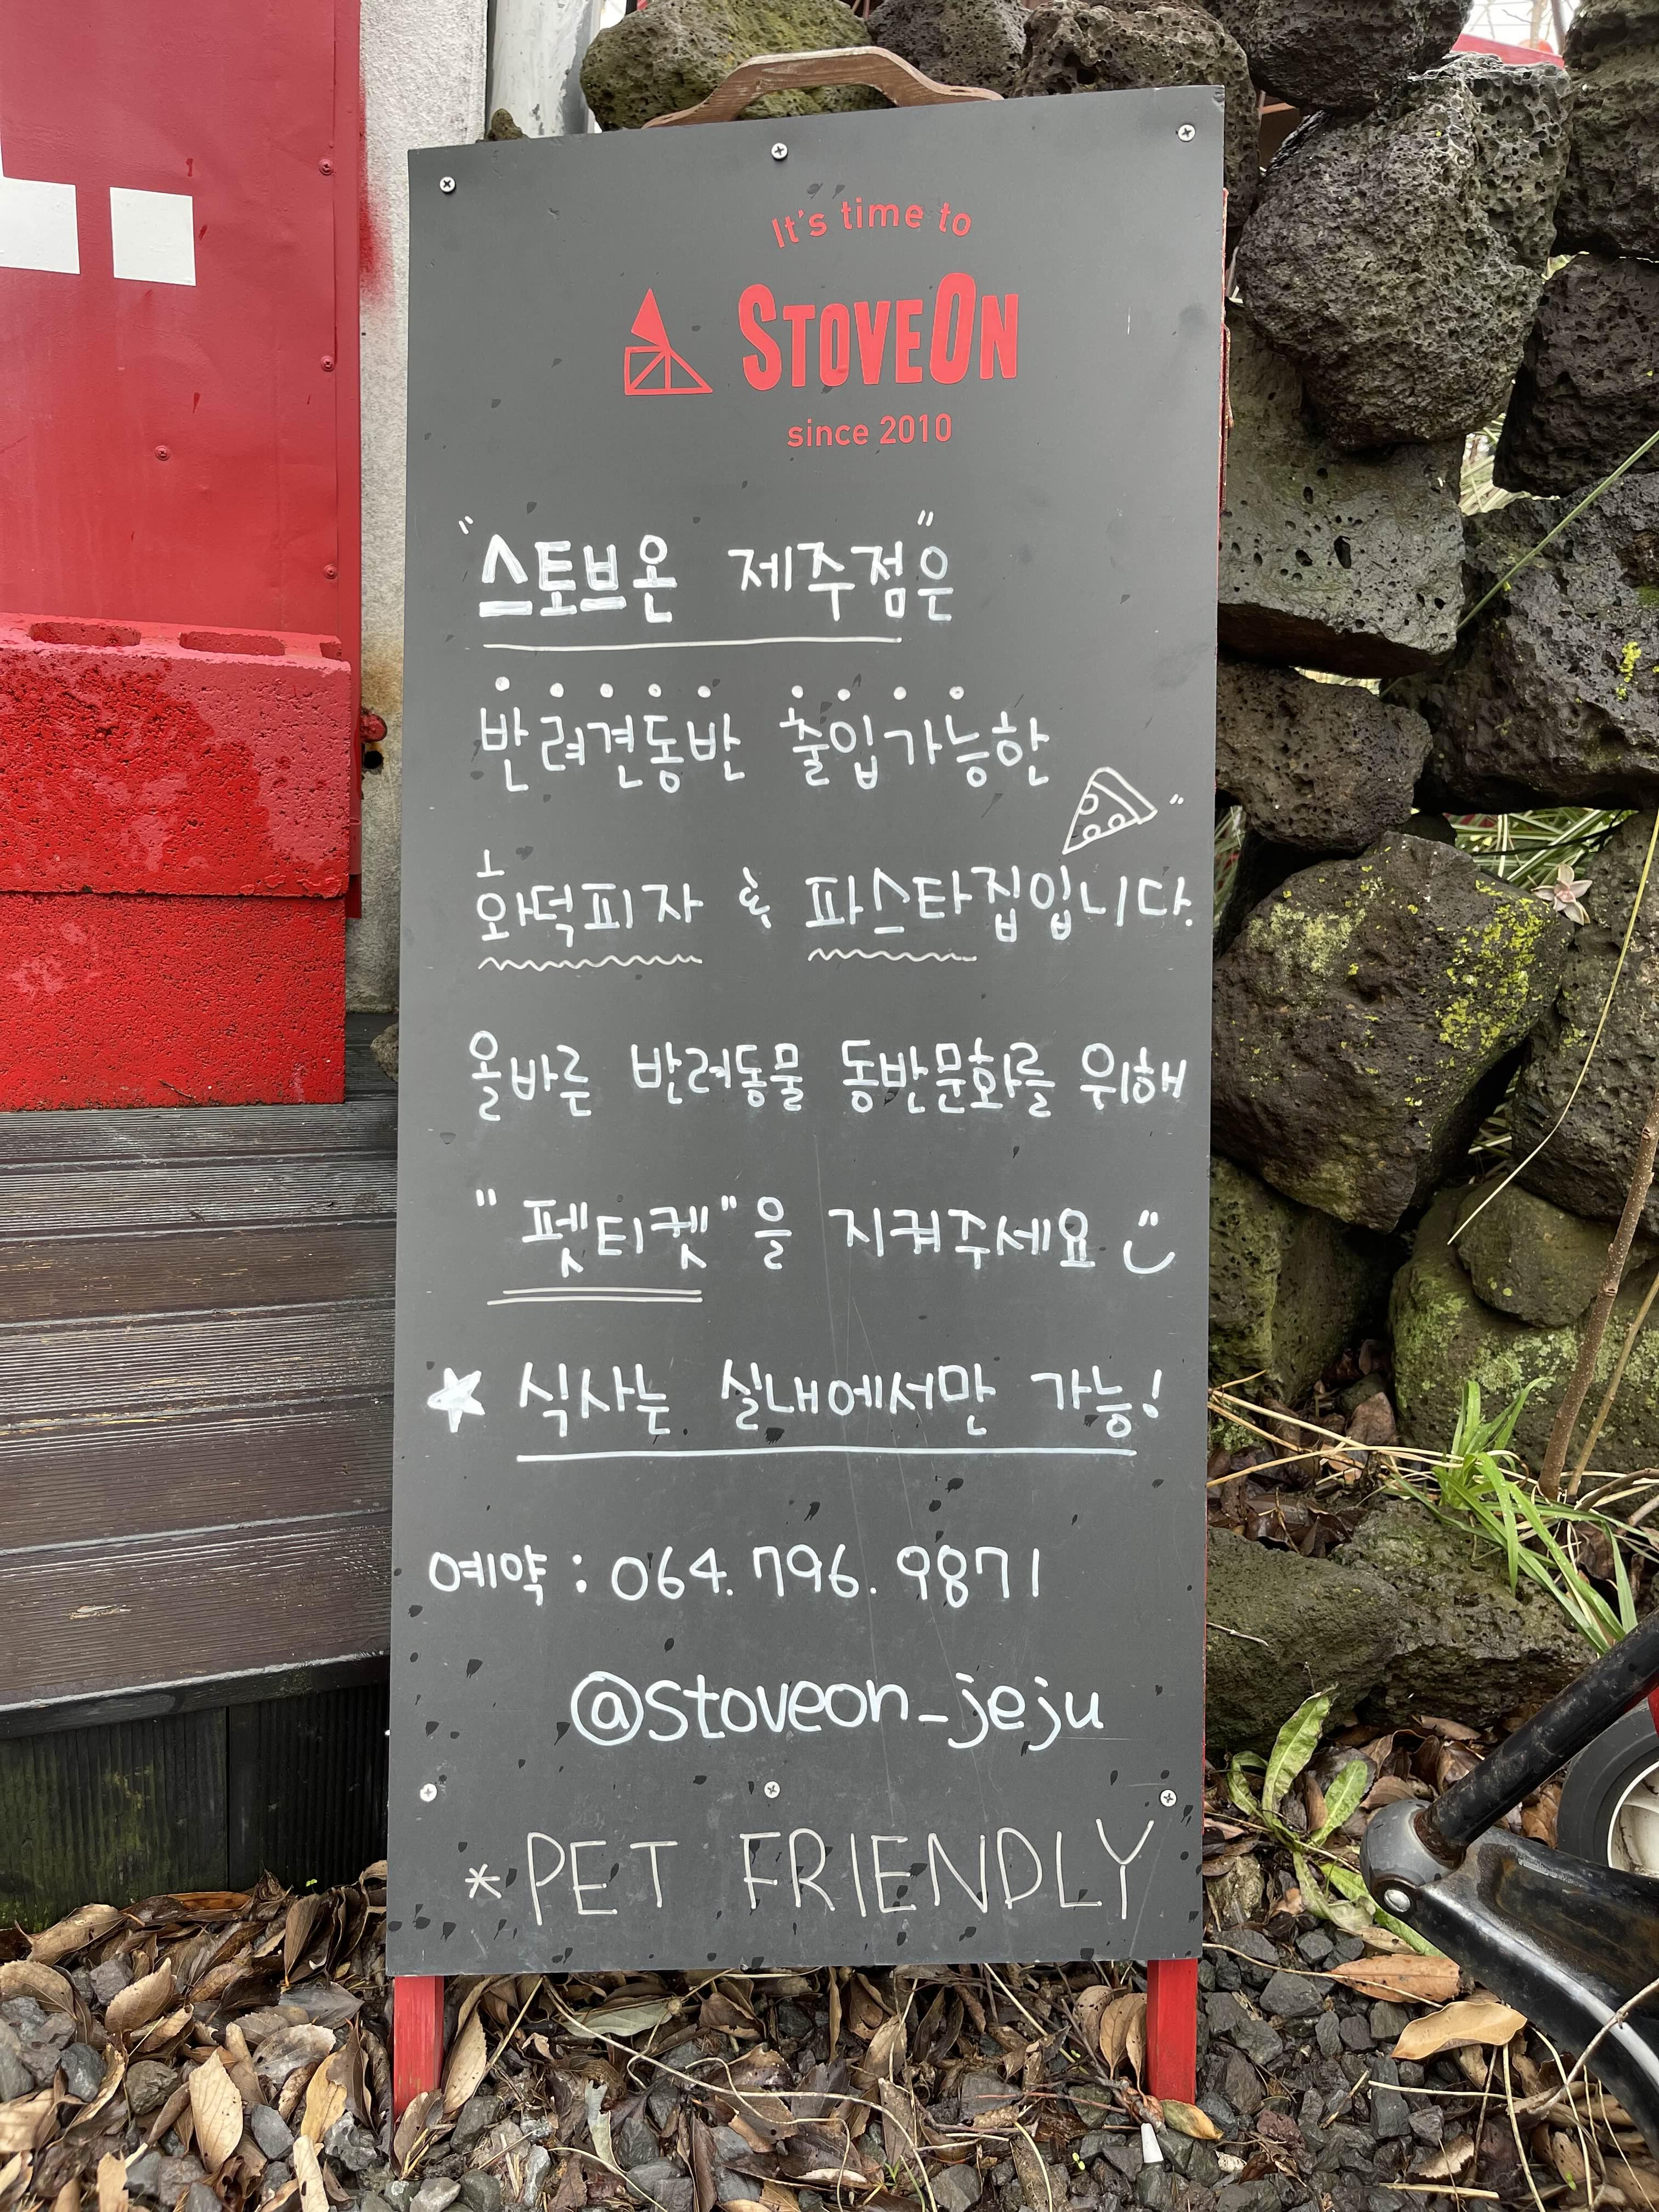 It's time to
STOVEON
since 2010
"스토브온 제주점"은
반려견동반 출입가능한
화덕피자 & 파스타집입니다.
올바른 반려동물 동반문화를 위해
"펫티켓"을 지켜주세요
★ 식사는 실내에서만 가능!
예약 : 064. 796. 9871
@stoveon_jeju
*PET FRIENDLY